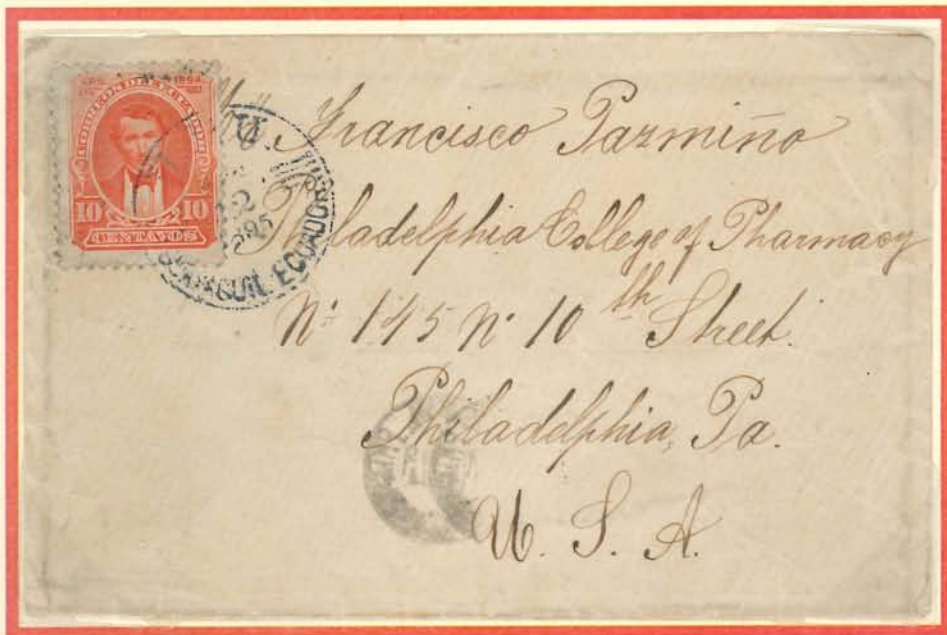 1894
CORREOS DEL ECUADOR
10 10
CENTAVOS
GUAYAQUIL ECUADOR
Francisco Pazmiño
Philadelphia College of Pharmacy
Nº 145 Nº 10th Street.
Philadelphia, Pa.
U. S. A.